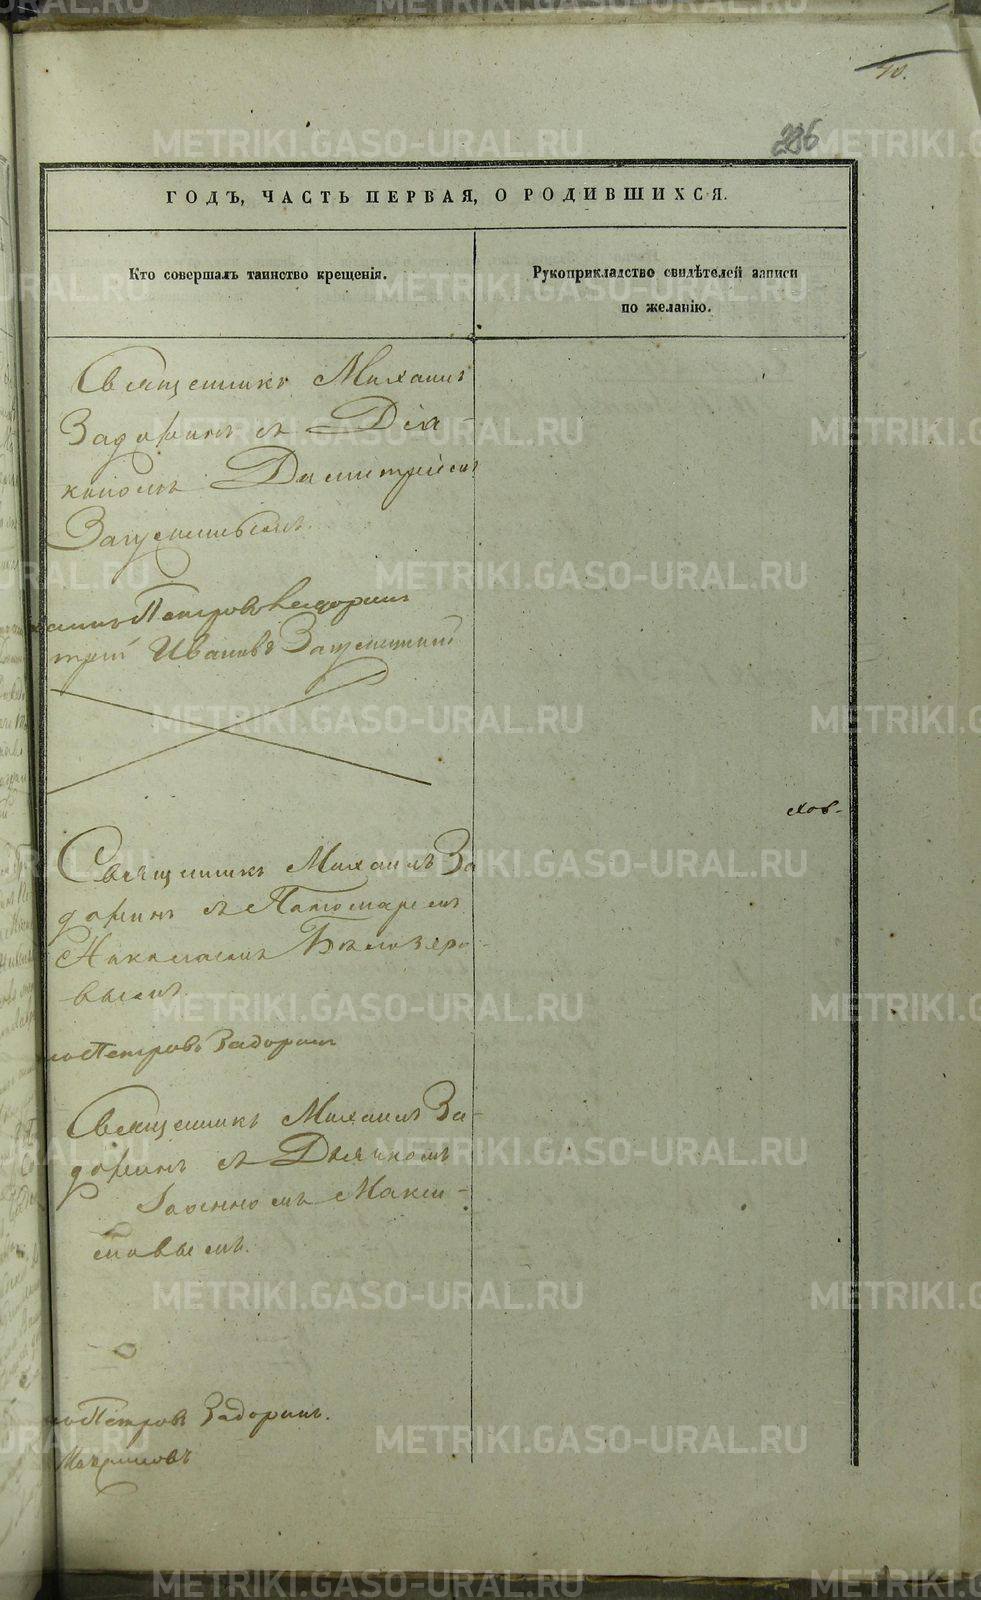 40.
286
ГОДЪ, ЧАСТЬ ПЕРВАЯ, О РОДИВШИХСЯ.
Кто совершалъ таинство крещенія.
Рукоприкладство свидѣтелей записи
по желанію.
Священникъ Михаилъ
Задоринъ съ Діа-
кономъ Димитріемъ
Петровъ Задоринъ
трій Ивановъ
хов-
Священникъ Михаилъ За
доринъ съ Пономаремъ
Николаемъ Бѣлозеро-
вымъ
Петровъ Задоринъ
Священникъ Михаилъ За-
доринъ съ Дьячкомъ
Іоанномъ Макси-
мовымъ.
Петровъ Задоринъ.
METRIKI.GASO-URAL.RU